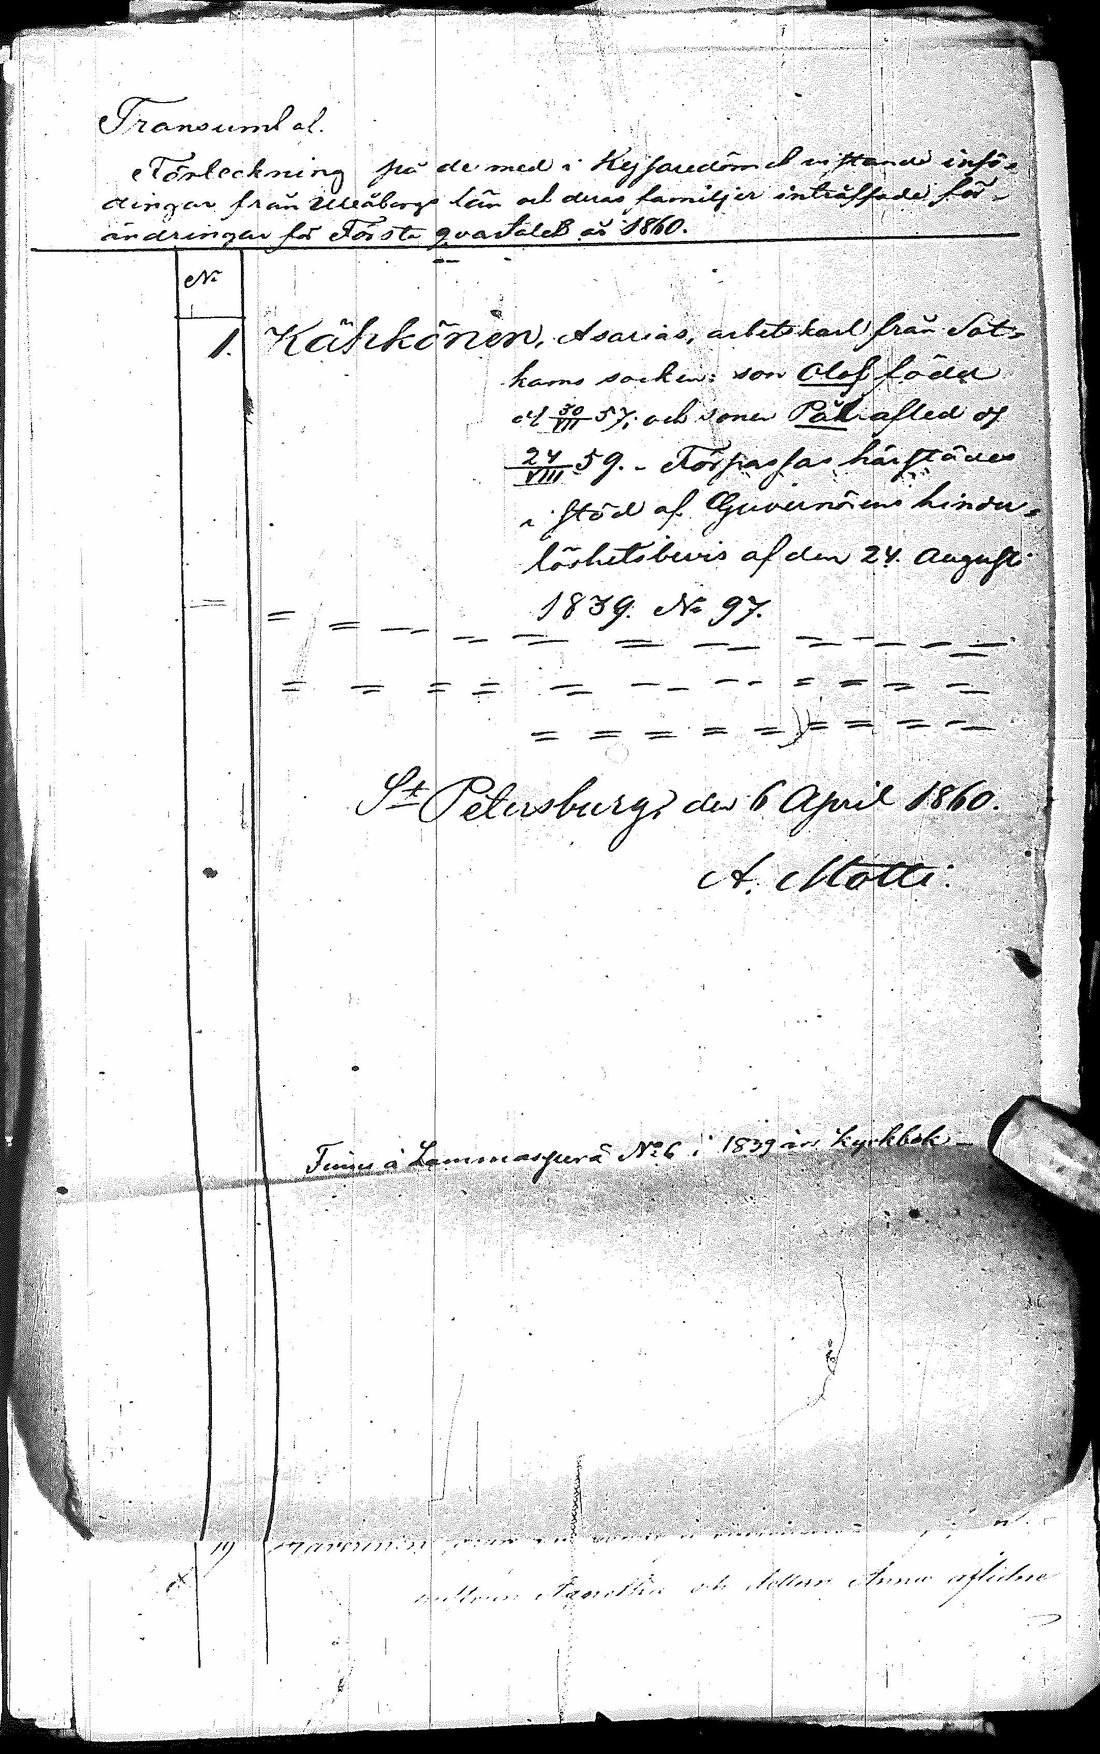 Transumt af.
Förteckning på de med i Kejsaredömet vistande infö-
dingar från Uleåborgs län och deras familjer inträffade för-
ändringar för Första qvartalet år 1860.
No
1. Kähkönen, Asarias, arbetskarl från Sot-
kamo socken: son Olof föder
d 30/VII 57; och sonen Pål afled d
24/VIII 59. - Förpassas härstädes
i stöd af Guvernörens hinder-
löshetsbevis af den 24 Augusti
1839. No 97.
St Petersburg, den 6 April 1860.
A. Motti.
Finnes å Lammasperä No 6 i 1839 års kyrkbok -
19
och dottern Anna aflidne